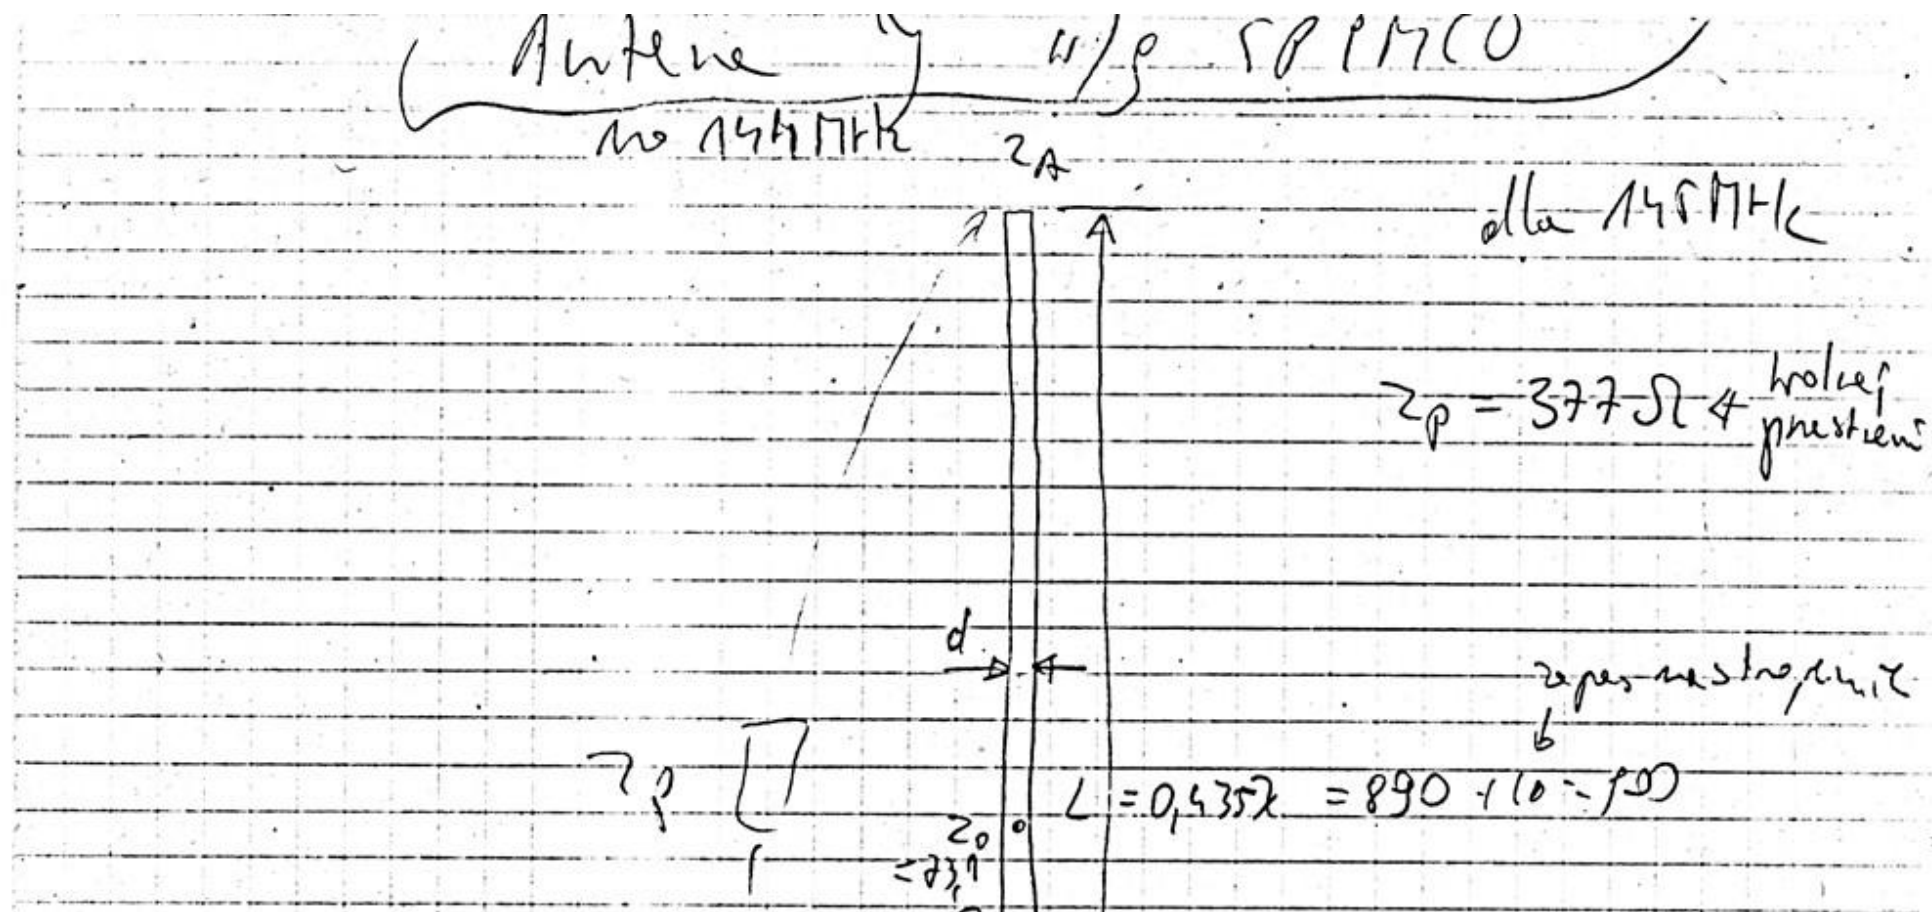 Antena "J" w/g SP1MCO
na 144 MHz
ZA
dla 145 MHz
Zp = 377 Ω ← wolnej
przestrzeni
d
zapas na strojenie
Zp
L = 0,435λ = 890 + 10 = 900
Z0
= 73,1